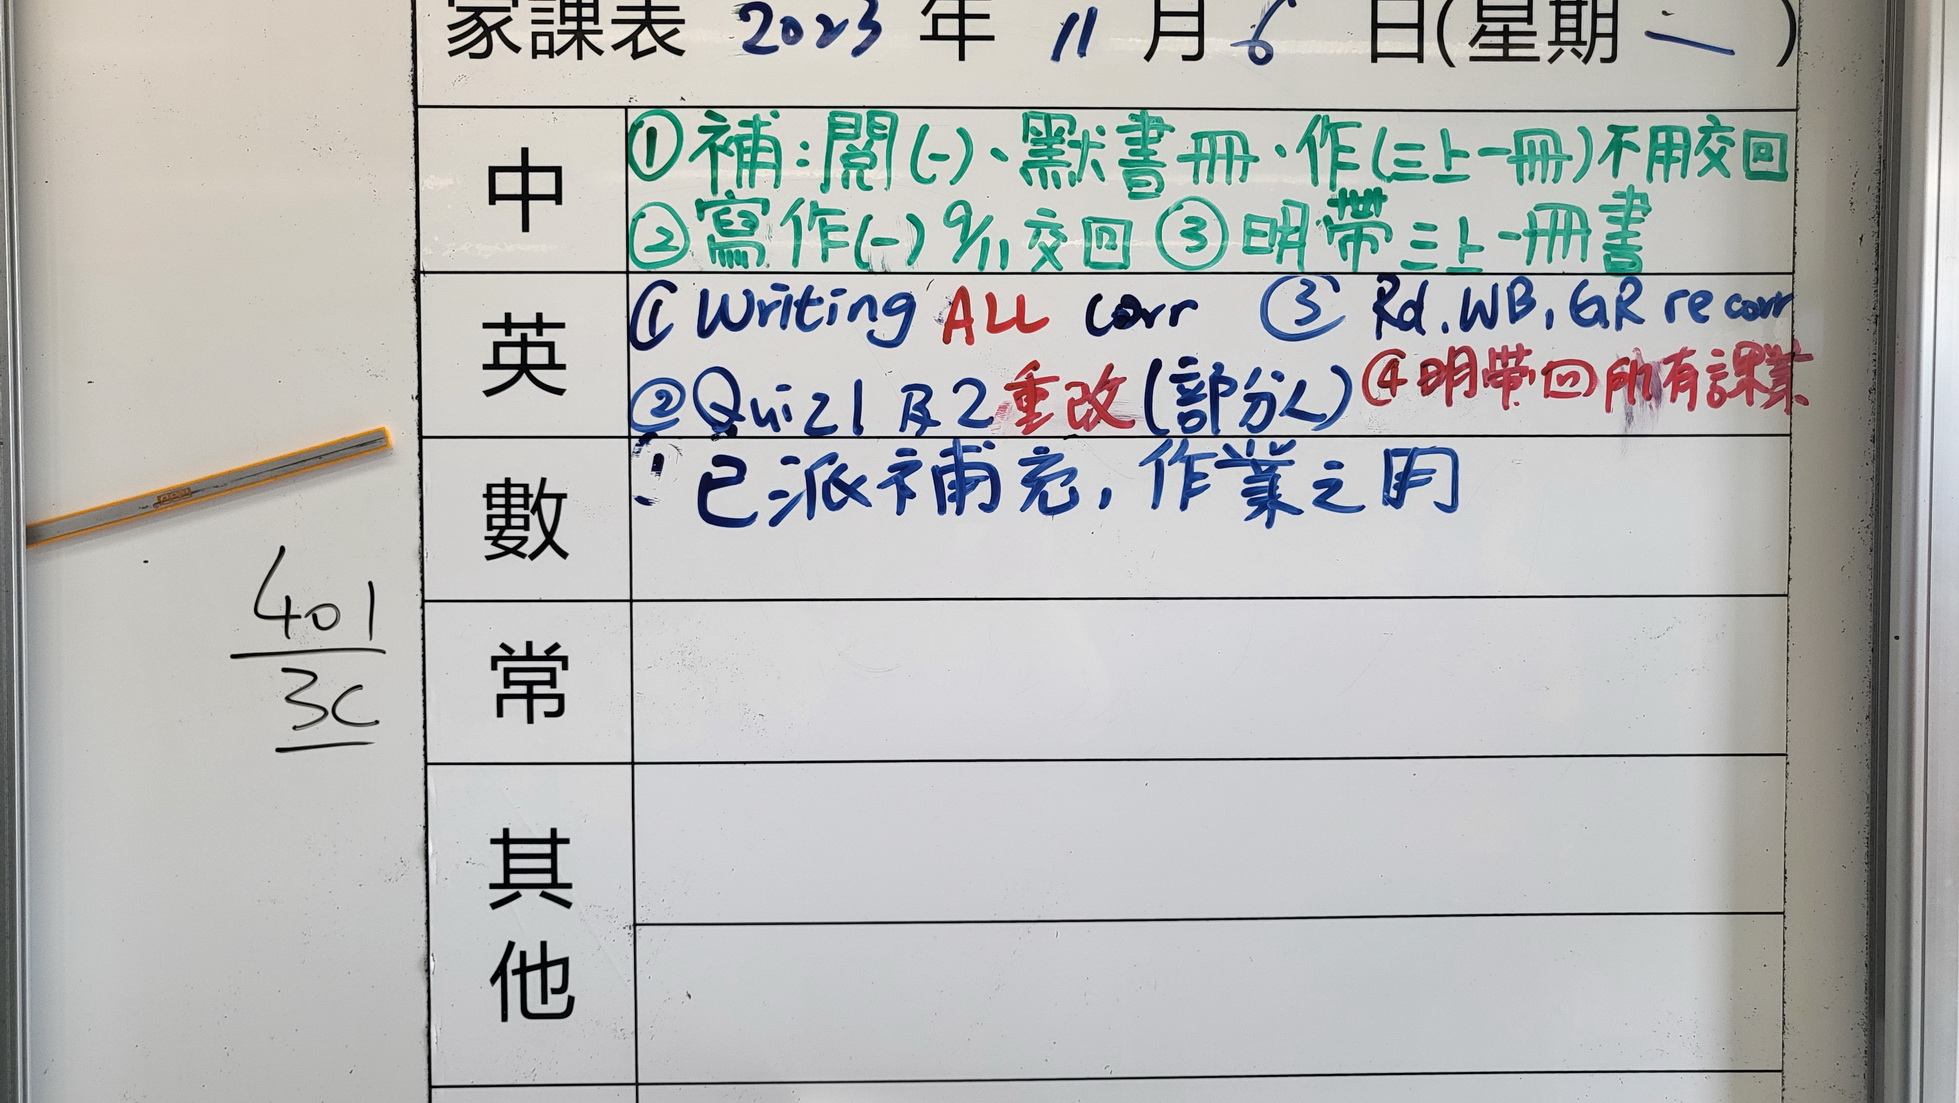 家課表 2023 年 11 月 6 日(星期 一 )
中
①補:閱(一)、默書冊、作(三上一冊)不用交回
②寫作(一) 9/11 交回 ③明帶三上一冊書
英
① Writing ALL corr ③ Rd, WB, GR re corr
② Quiz 1 及 2 重改 (部分人) ④明帶回所有課業
數
已派補充, 作業之用
常
其他
401
3C